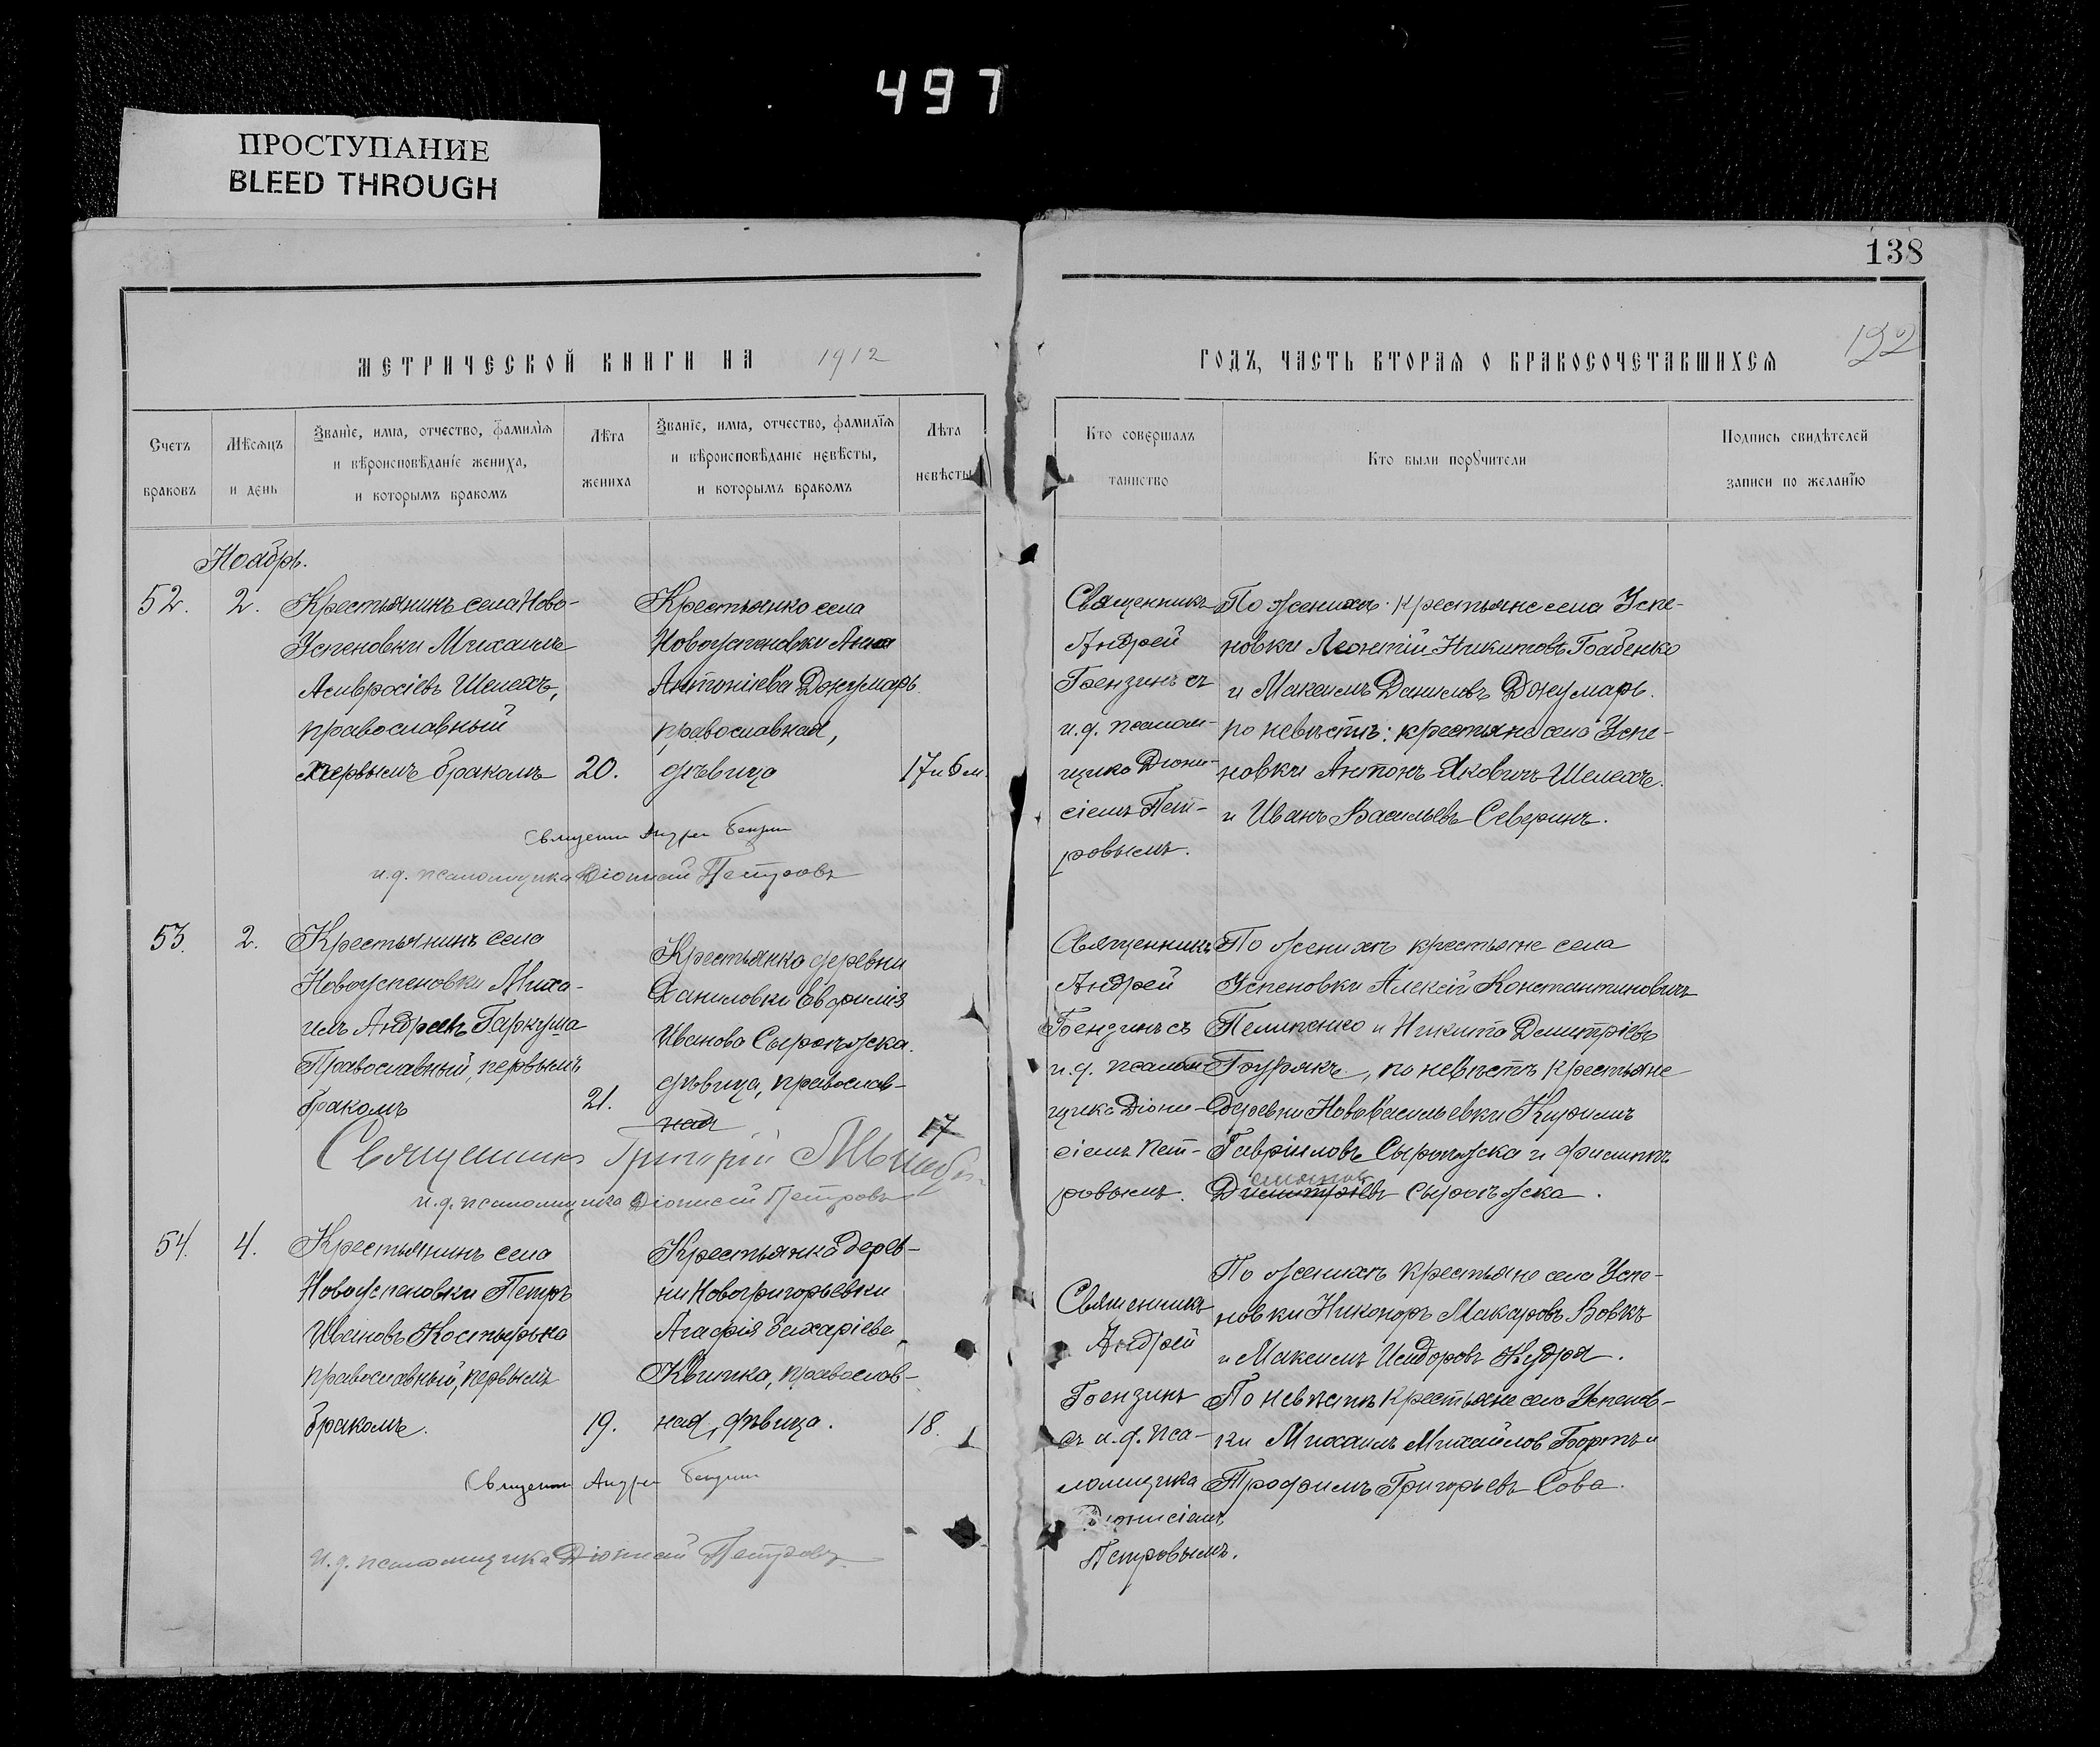 497
ПРОСТУПАНИЕ
BLEED THROUGH
138
192
МЕТРИЧЕСКОЙ КНИГИ НА 1912
ГОДЪ, ЧАСТЬ ВТОРАЯ О БРАКОСОЧЕТАВШИХСЯ
Счетъ браковъ
Мѣсяцъ и день
Званіе, имя, отчество, фамилія
и вѣроисповѣданіе жениха,
и которымъ бракомъ
Лѣта жениха
Званіе, имя, отчество, фамилія
и вѣроисповѣданіе невѣсты,
и которымъ бракомъ
Лѣта невѣсты
Кто совершалъ таинство
Кто были порꙋчители
Подпись свидѣтелей
записи по желанію
Ноабрь.
52.
2.
Крестьянинъ села Ново-
Успеновки Михаилъ
Амвросіевъ Шелехъ,
православный
первымъ бракомъ
20.
Крестьянка села
Новоуспеновки Анна
Антоніева Джумаръ
православная,
дѣвица
17 и 6 м.
Священникъ
Андрей
Бензинъ съ
и.д. псалом-
щика Діони-
сіемъ Пет-
ровымъ.
По женихѣ: крестьяне села Успе-
новки Леонтій Никитовъ Бабенко
и Максимъ Даниловъ Джумаръ.
по невѣстѣ: крестьяне села Успе-
новки Антонъ Яковичъ Шелехъ.
и Иванъ Васильевъ Северинъ.
Священн Андрей Бензин
и.д. псаломщика Діонисій Петровъ
53.
2.
Крестьянинъ села
Новоуспеновки Миха-
илъ Андреевъ Гаркуша
Православный, первымъ
бракомъ
21.
Крестьянка деревни
Даниловки Евфимія
Иванова Сыроѣжска.
дѣвица, православ-
ная
17
Священникъ
Андрей
Бензинъ съ
и.д. псалом
щика Діони-
сіемъ Пет-
ровымъ.
По женихѣ крестьяне села
Успеновки Алексій Константиновичъ
и Никита Димитріевъ
, по невѣстѣ крестьяне
деревни Нововасильевки Кирилъ
Гавріиловъ Сыроѣжска и Филиппъ
Димитріевъ Сыроѣжска.
Священникъ Григорій
и.д. псаломщика Діонисій Петровъ
54.
4.
Крестьянинъ села
Новоуспеновки Петръ
Ивановъ Костырько
православный, первымъ
бракомъ.
19.
Крестьянка дерев-
ни Новогригорьевки
Агафія Захаріева
Квитка, православ-
ная, дѣвица.
18.
Священникъ
Андрей
Бензинъ
съ и.д. пса-
ломщика
Діонисіемъ
Петровымъ.
По женихѣ крестьяне села Успе-
новки Никоноръ Макаровъ Вовкъ
и Максимъ Исидоровъ Кудря.
По невѣстѣ крестьяне села Успенов-
ки Михаилъ Михайлов Бортъ и
Трофимъ Григорьевъ Сова.
Священн Андрей Бензин
и.д. псаломщика Діонисій Петровъ